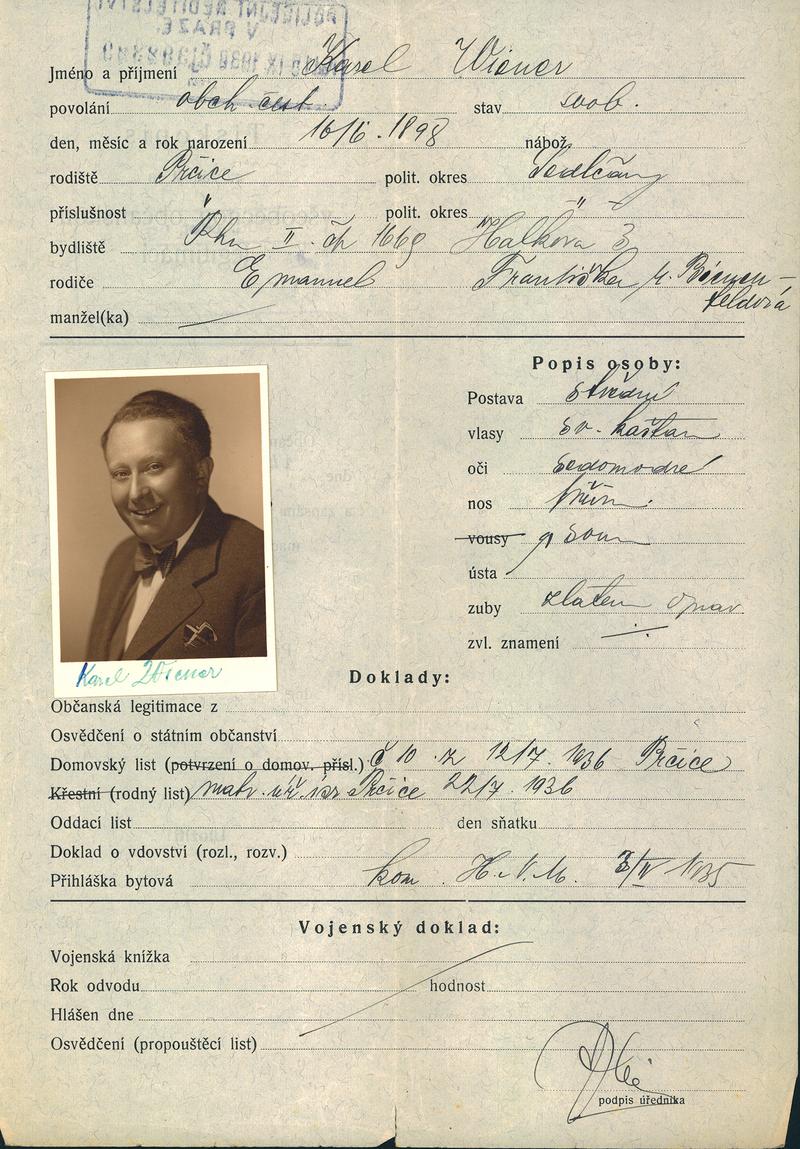 Jméno a příjmení Karel Wiener
povolání obch. čest. stav svob.
den, měsíc a rok narození 16/6. 1898 nábož.
rodiště Prčice polit. okres Sedlčany
příslušnost " polit. okres - " -
bydliště Pha II. čp 1669 Hálkova 3
rodiče Emanuel Františka r.
manžel(ka)
Popis osoby:
Postava střední
vlasy sv. kaštan
oči šedomodré
nos přim.
vousy
ústa
zuby zlatem oprav
zvl. znamení
Karel Wiener
Doklady:
Občanská legitimace z
Osvědčení o státním občanství
Domovský list (potvrzení o domov. přísl.) č 10 z 12/7. 1936 Prčice
Křestní (rodný list) matr. úř. isr Prčice 22/7. 1936
Oddací list den sňatku
Doklad o vdovství (rozl., rozv.)
Přihláška bytová kom. H.V.M. 1935
Vojenský doklad:
Vojenská knížka
Rok odvodu hodnost
Hlášen dne
Osvědčení (propouštěcí list)
podpis úředníka